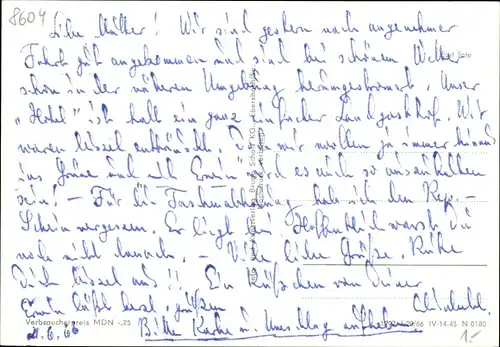 8604
Liebe Mutter! Wir sind gestern nach angenehmer
Fahrt gut angekommen und sind bei schönem Wetter
schon in der näheren Umgebung herumgestromert. Unser
"Hotel" ist halt ein ganz einfacher Landgasthof. Wir
waren bissel enttäuscht. Da wir wollen ja immer hinaus
ins Grüne und mit Erwin wird es auch so auszuhalten
sein! – Für die Taschen habe ich den Rep.-
Schein vergessen. Er liegt bei Hoffentlich warst Du
noch nicht danach. – Viele liebe Grüße. Ruhe
Dich bissel aus!! Ein Küßchen von Deiner
Erwin läßt herzl. grüßen
Verbraucherpreis MDN -,25
/66 IV-14-45 N 0180
21.6.66 Bitte Karte u. Umschlag aufheben
1.-